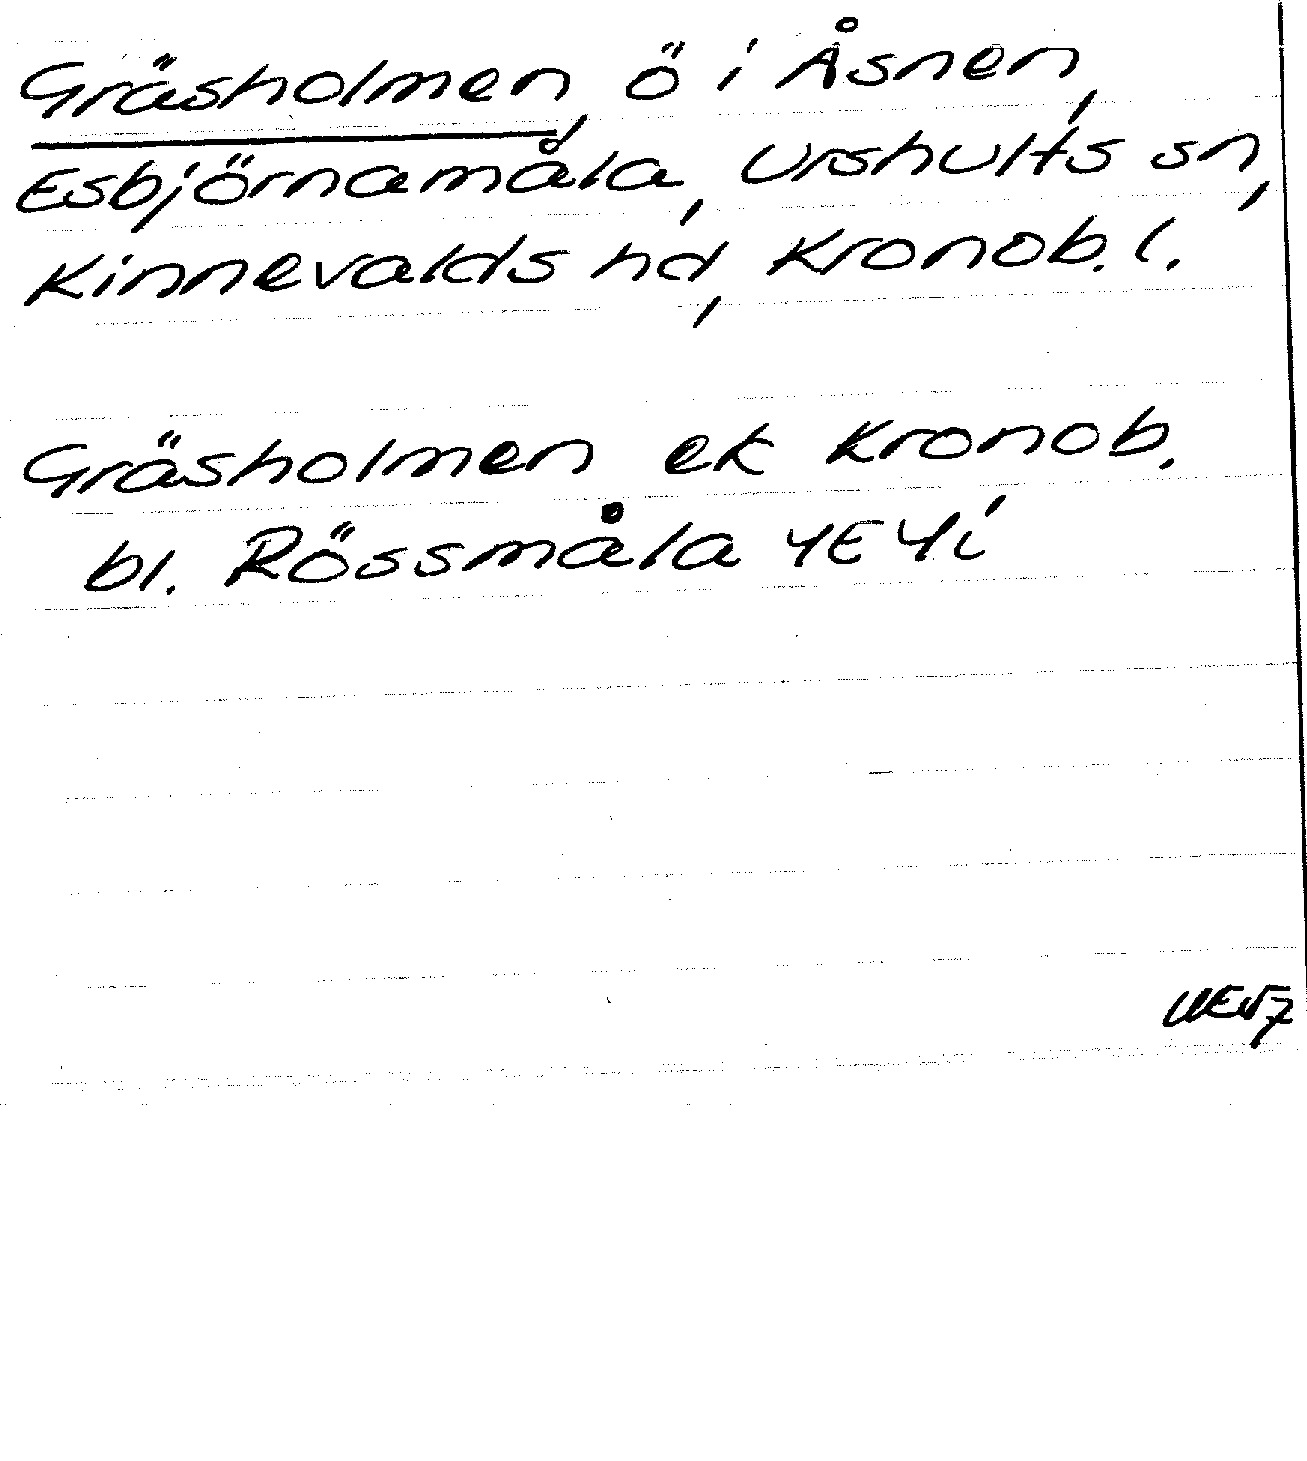 Gräsholmen, ö i Åsnen,
Esbjörnamåla, Urshults sn,
Kinnevalds hd, Kronob. l.
Gräsholmen ek Kronob.
bl. Rössmåla 4E4i